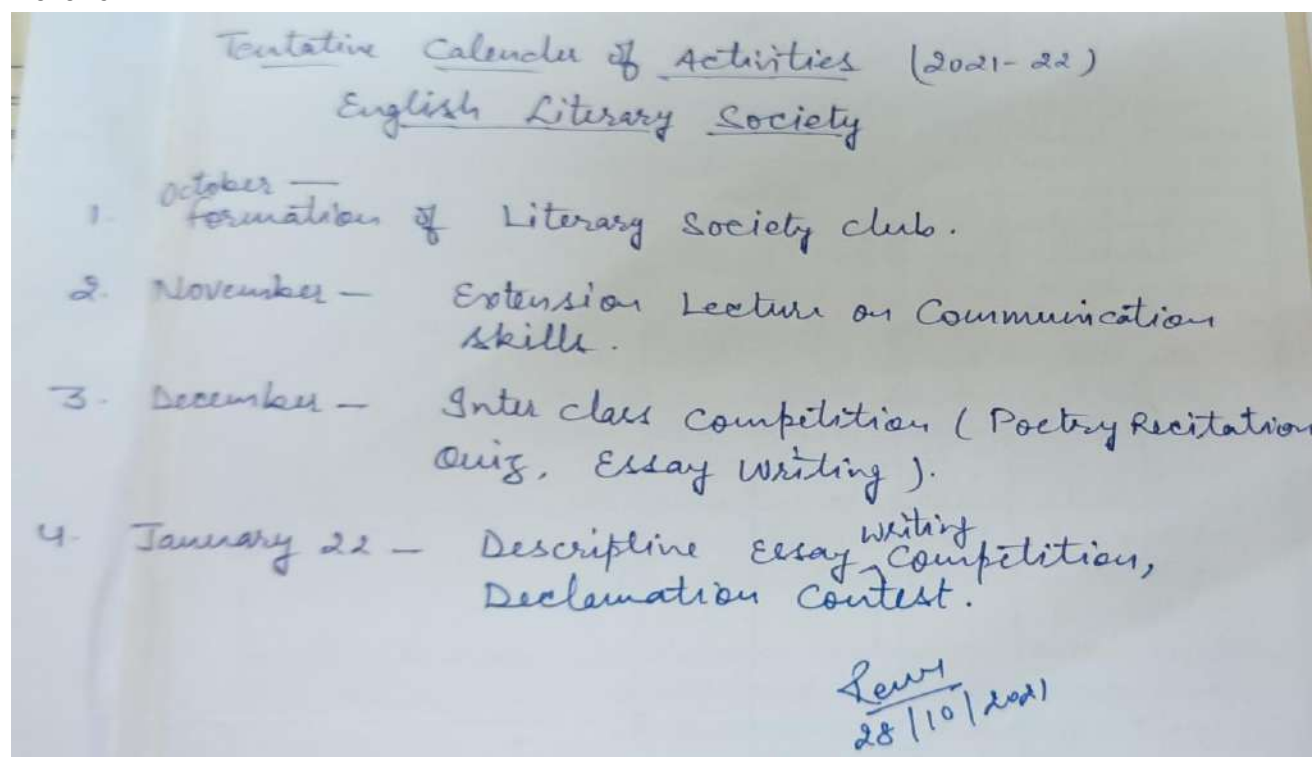 Tentative Calender of Activities (2021-22)
English Literary Society
October —
1. formation of Literary Society club.
2. November — Extension Lecture on Communication
skills.
3. December — Inter class Competition (Poetry Recitation
Quiz, Essay Writing).
writing
4. January 22 — Descriptive Essay Competition,
Declamation Contest.
28/10/2021